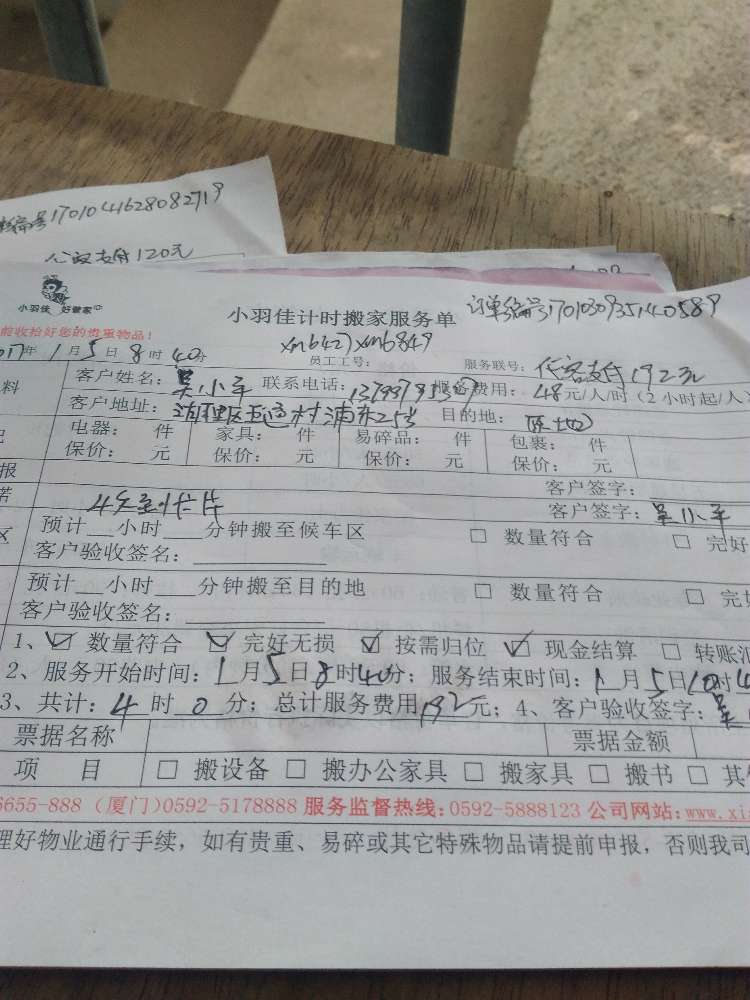 编号17010441628082719
支付120元
小羽佳 好管家
小羽佳计时搬家服务单
订单编号17010309351440589
前收拾好您的贵重物品！
xm6427 xm6849
017年1月5日8时40分
员工工号：
服务联号：
客支付192元
料
客户姓名：吴小平 联系电话： 费用：48元/人/时（2小时起/人）
客户地址： 目的地：
电器： 件 家具： 件 易碎品： 件 包裹： 件
保价： 元 保价： 元 保价： 元 保价： 元
报
客户签字：
诺
客户签字：吴小平
区
预计 小时 分钟搬至候车区 □ 数量符合 □ 完好
客户验收签名：
预计 小时 分钟搬至目的地 □ 数量符合 □ 完好
客户验收签名：
1、☑ 数量符合 ☑ 完好无损 ☑ 按需归位 ☑ 现金结算 □ 转账汇
2、服务开始时间：1月5日8时40分；服务结束时间：1月5日10时4
3、共计：4时0分；总计服务费用192元；4、客户验收签字：吴
票据名称 票据金额
项 目 □ 搬设备 □ 搬办公家具 □ 搬家具 □ 搬书 □ 其
6655-888（厦门）0592-5178888 服务监督热线：0592-5888123 公司网站：www.xia
理好物业通行手续，如有贵重、易碎或其它特殊物品请提前申报，否则我司